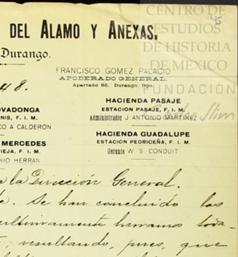 DEL ALAMO Y ANEXAS,
Durango.
CENTRO DE
ESTUDIOS
DE HISTORIA
DE MÉXICO
FUNDACIÓN
FRANCISCO GOMEZ PALACIO
APODERADO GENERAL
Apartado 88, Durango, Dgo.
HACIENDA PASAJE
ESTACION PASAJE, F. I. M.
Administrador J ANTONIO MARTINEZ
OVADONGA
NIS, F. I. M.
CO A CALDERON
HACIENDA GUADALUPE
ESTACION PEDRICEÑA, F. I. M.
Gerente W. S. CONDUIT
MERCEDES
IEJA, F. I. M.
NIO HERRAN
a la Dirección General.
Se han concluido las
hemos
resultando, pues, que